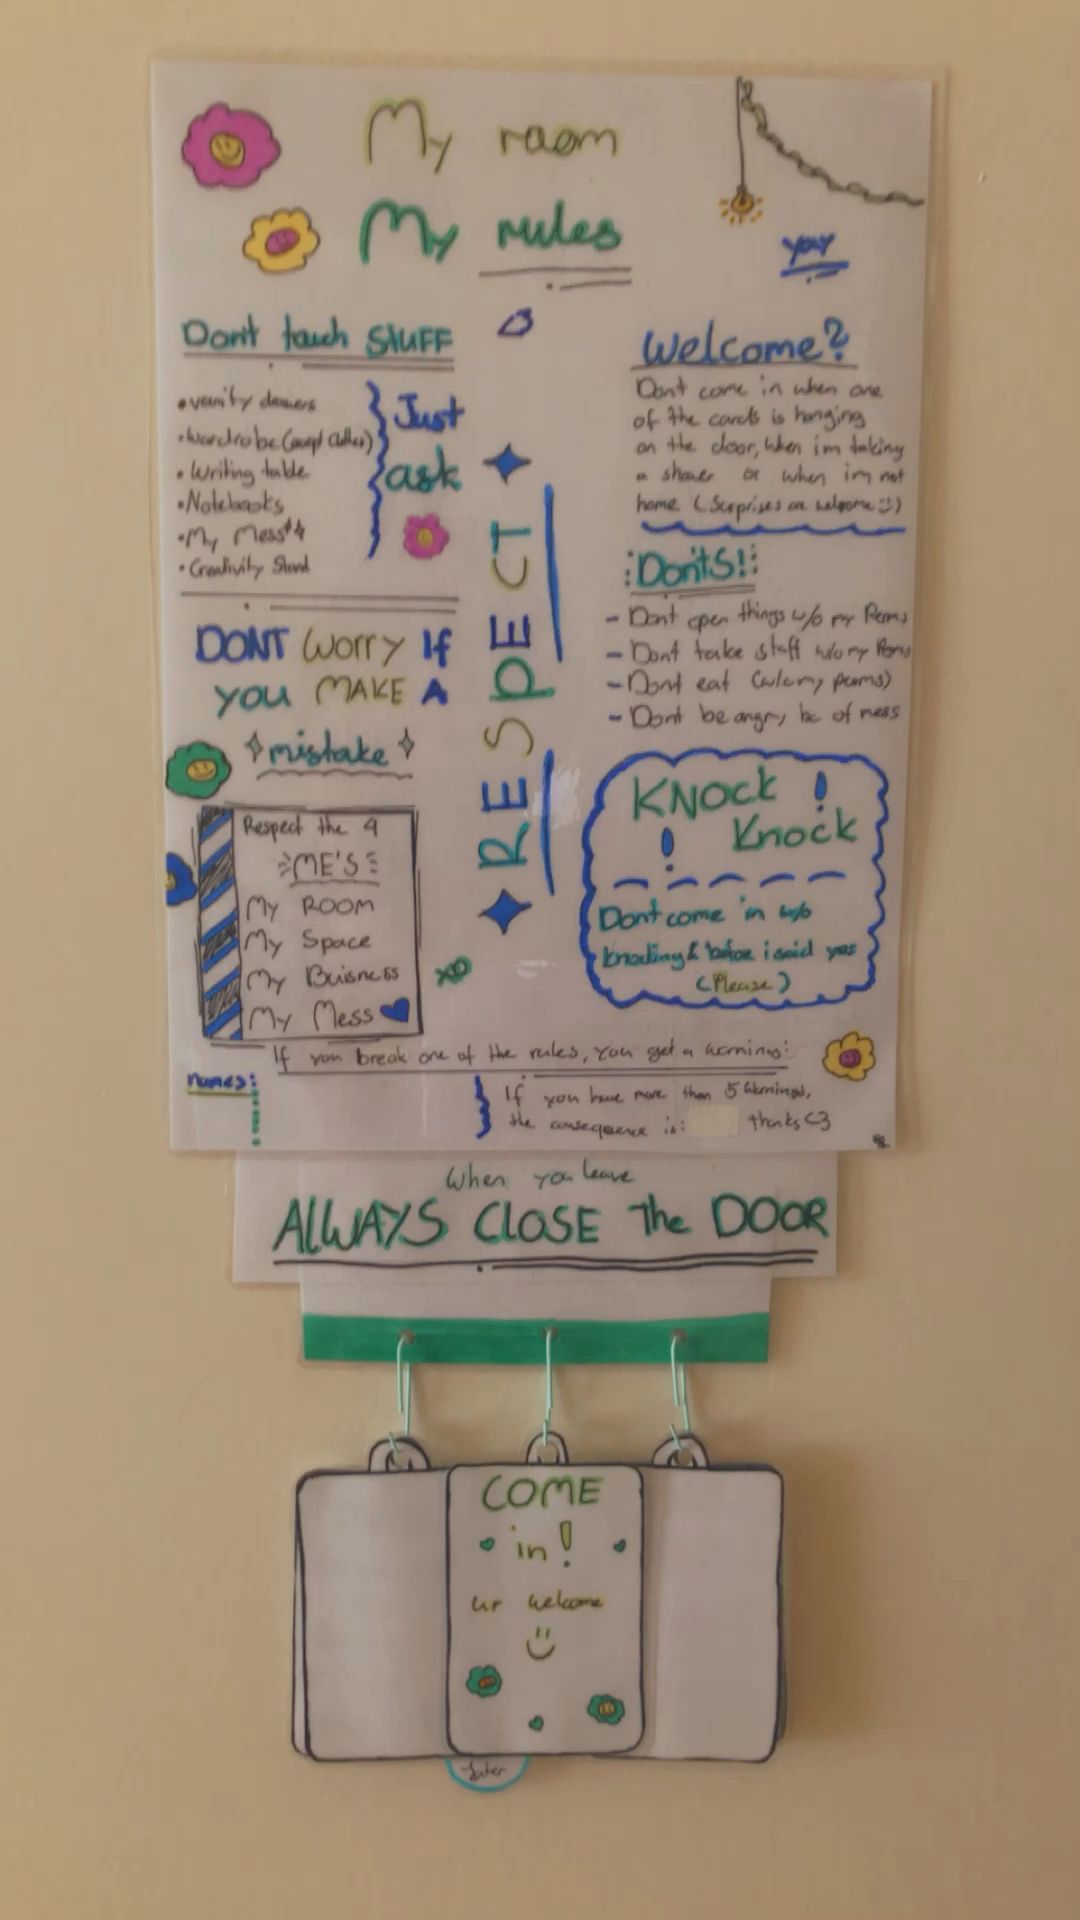 My room
My rules
yay
Dont touch STUFF
• vanity drawers
• Wardrobe (except clothes)
• Writing table
• Notebooks
• My Mess
• Creativity Stand
Just
ask
DONT worry If
you MAKE A
mistake
Respect the 4
ME'S
My ROOM
My Space
My Buisness
My Mess
xo
RESPECT
Welcome?
Dont come in when one
of the cards is hanging
on the door, when im taking
a shower or when im not
home (Surprises are welcome :))
Don'ts!
- Dont open things w/o my Perms
- Dont take stuff w/o my Perms
- Dont eat (w/o my perms)
- Dont be angry bc of mess
KNOCK !
! Knock
Dont come in w/o
knocking & before i said yes
(Please)
If you break one of the rules, you get a warning:
names:
If you have more than 5 warnings,
the consequence is: thanks <3
When you leave
ALWAYS CLOSE The DOOR
COME
in!
ur welcome
later